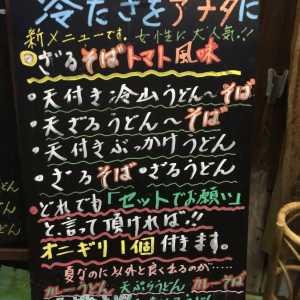 冷たさをアナタに
新メニューです。女性に大人気!!
ざるそばトマト風味
・天付き冷山うどん〜そば
・天ざるうどん〜そば
・天付きぶっかけうどん
・ざるそば・ざるうどん
・どれでも「セットでお願い」
と言って頂ければ!!
オニギリ1個付きます。
夏なのに以外と良く出るのが……
カレーうどん 天ぷらうどん カレーそば
うどん